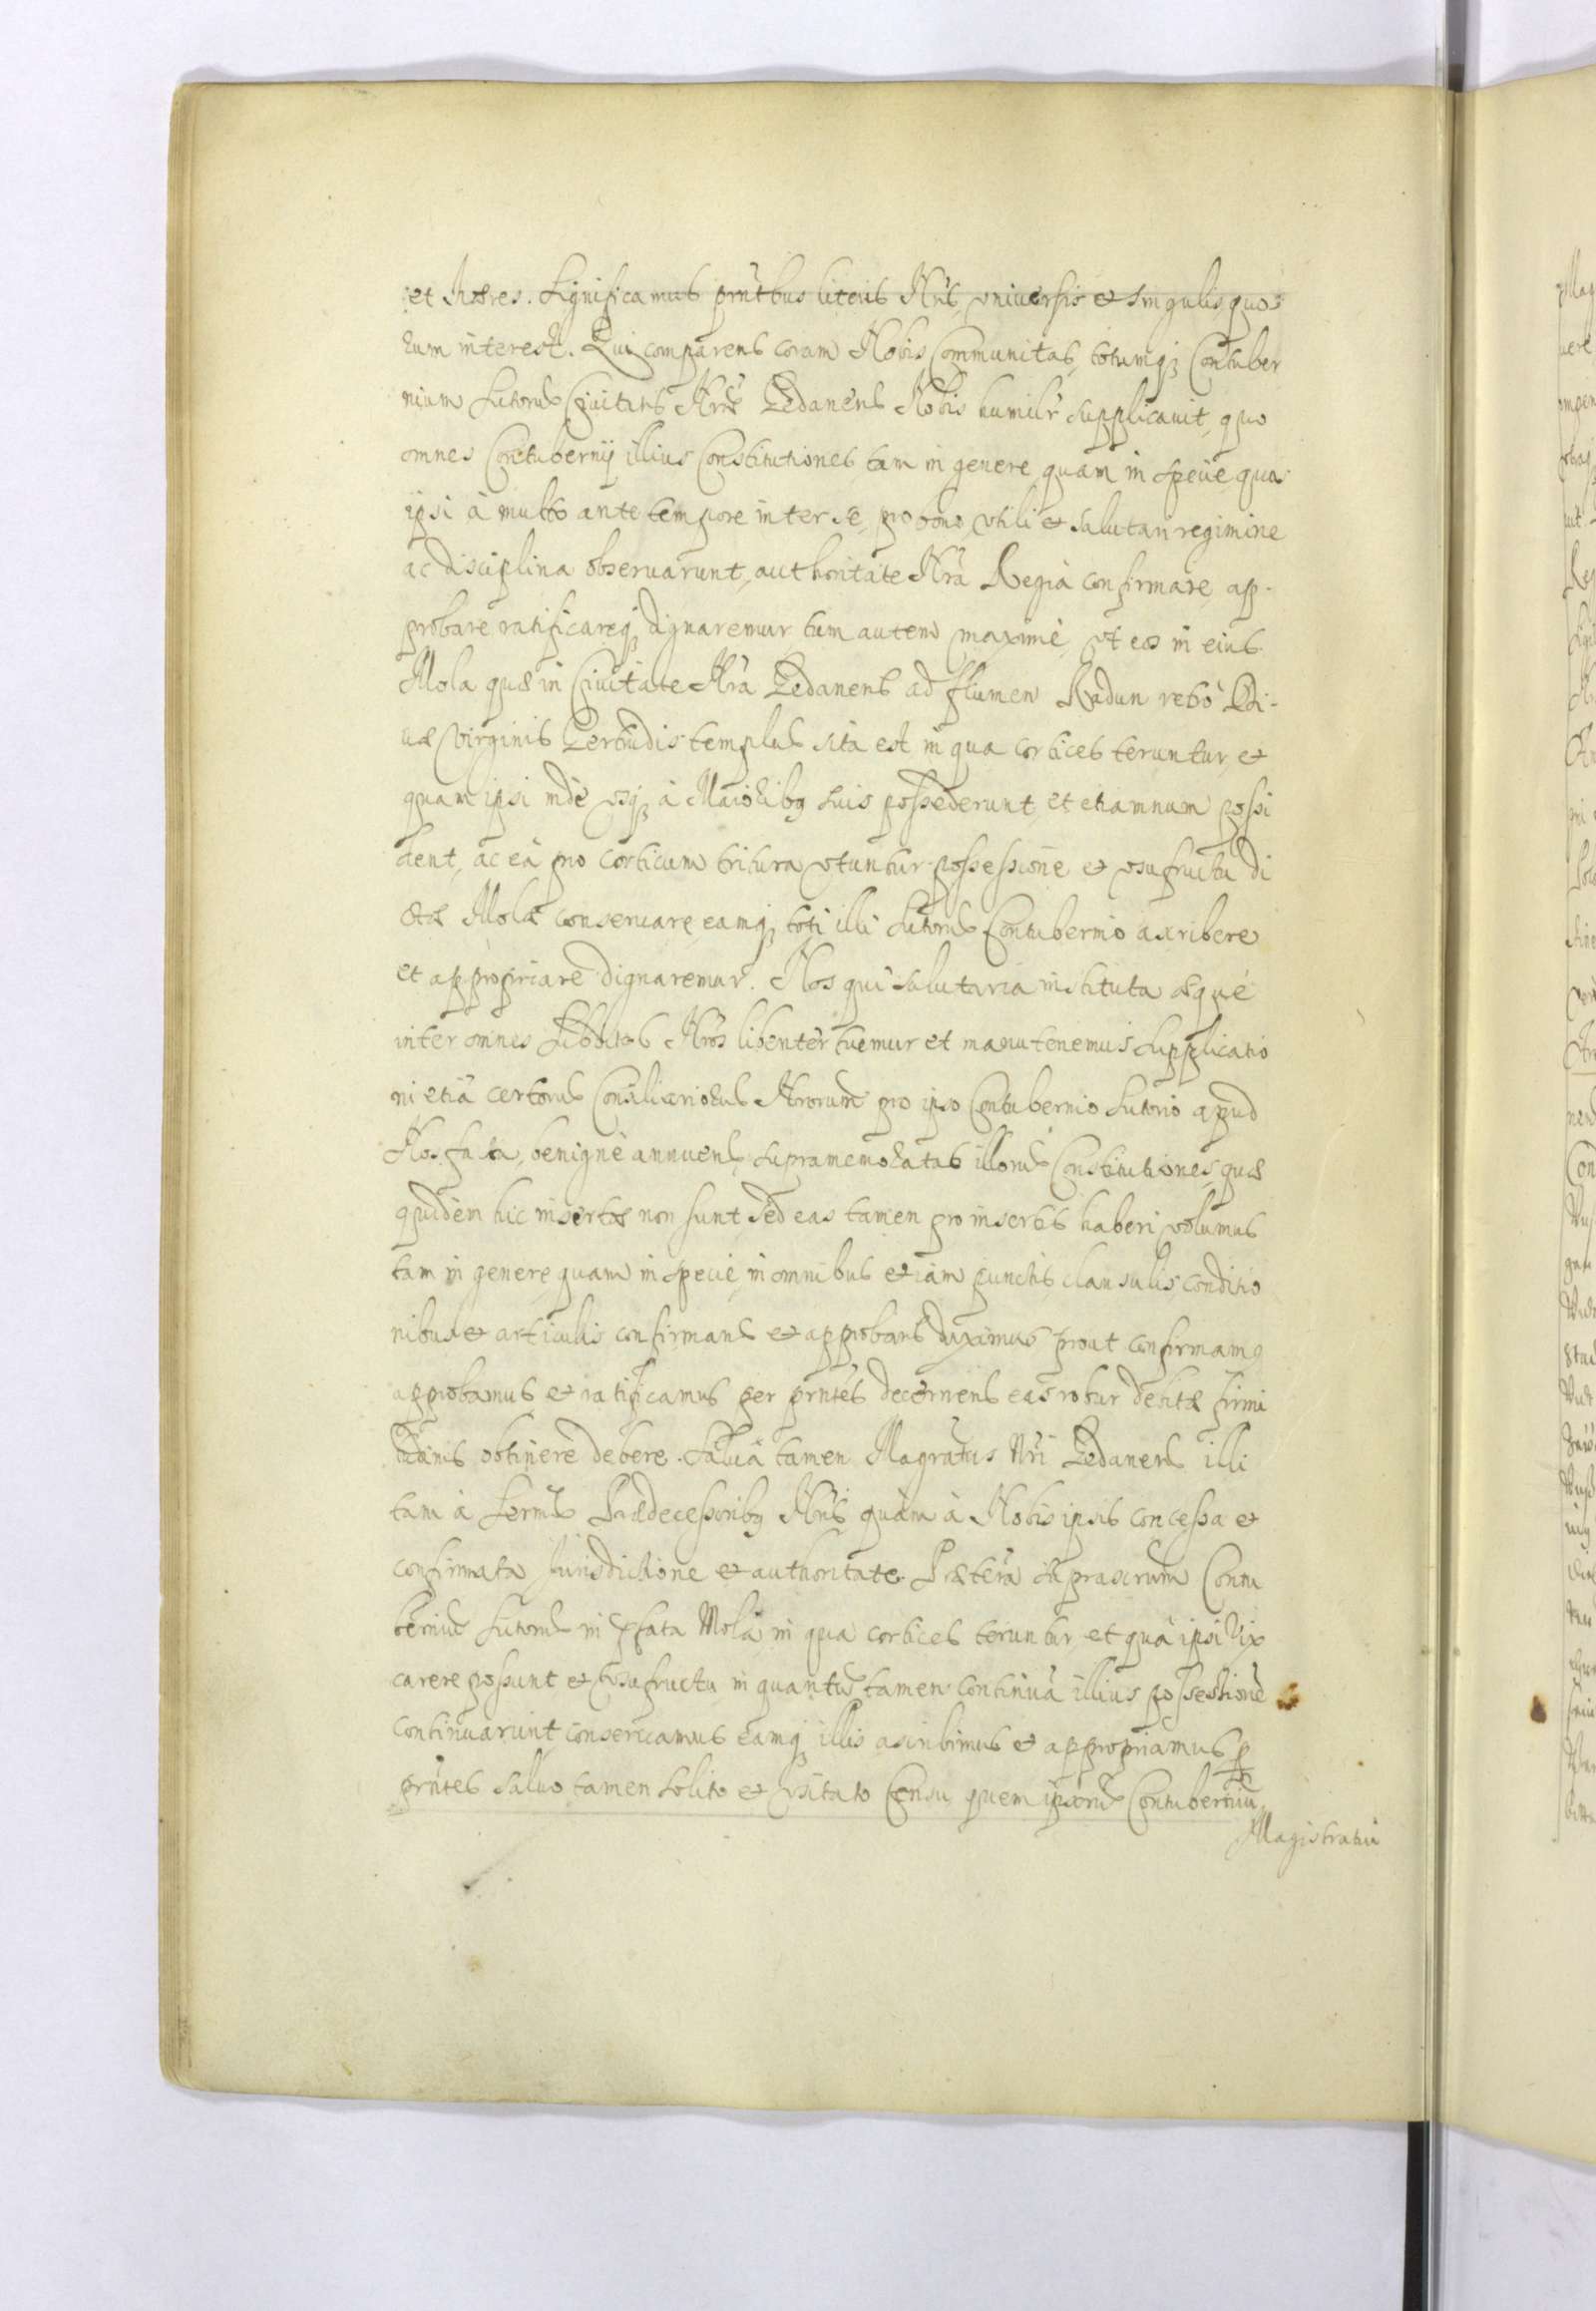 et Hæres. Significamus prñtbus literis Nr̃is, vniuersis et singulis, quo⸗
rum interest. Qui comparens coram Nobis Communitas, totumq; Contuber
nium Sutorũ Ciuitatis Nræ Gedanens Nobis humilr̃ supplicauit, quo
omnes Contubernij illius Constitutiones, tam in genere quam in specie, quas
ipsi à multo ante tempore inter se, pro bono, vtili et salutari regimine
ac disciplina obseruarunt, authoritate Nr̃a Regia confirmare, ap-
probare ratificareq; dignaremur tum autem maximè, vt eos in eius
Mola quæ in Ciuitate Nr̃a Gedanens ad flumen Radun retrò Di-
uæ Virginis Gertrudis templũ sita est in qua cortices teruntur, et
quam ipsi indè vsq; à Maioribq suis possederunt, et etiamnum possi
dent, ac eà pro corticum tritura vtuntur possessione et vsufructu di
ctæ Molæ conseruare, eamq; toti illi Sutorũ Contubernio ascribere
et appropriare dignaremur. Nos qui salutaria instituta æquè
inter omnes Subditos Nr̃os libenter tuemur et manutenemus Supplicatio
ni etiã certorũ Consiliariorũ Nrorum pro ipso Contubernio Sutorio apud
Nos facta, benignè annuens, supramemoratas illorũ Constitutiones, quæ
quidem hic insertæ non sunt, sed eas tamen pro insertis haberi volumus
tam in genere, quam in specie, in omnibus etiam punctis clausulis, conditio
nibus et articulis confirmand et approband duximus prout confirmamq
approbamus et ratificamus per prñtes decernens eas robur debitæ firmi
tudinis obtinere debere. Saluâ tamen Magratus Nri Gedanens illi
tam à Sermis Prædecessoribq Nr̃is quàm à Nobis ipsis concessa et
confirmata Jurisdictione et authoritate. Præterà suprascrum Contu
berniũ Sutorũ in pfata Mola, in qua cortices teruntur, et quâ ipsi vix
carere possunt et vsufructu in quantũ tamen continuâ illius possessionẽ
continuarunt conseruamus eamq; illis ascribimus et appropriamus p
prñtes saluo tamen solito et vsitato Censu quem ipsorũ Contuberniũ
Magistratui